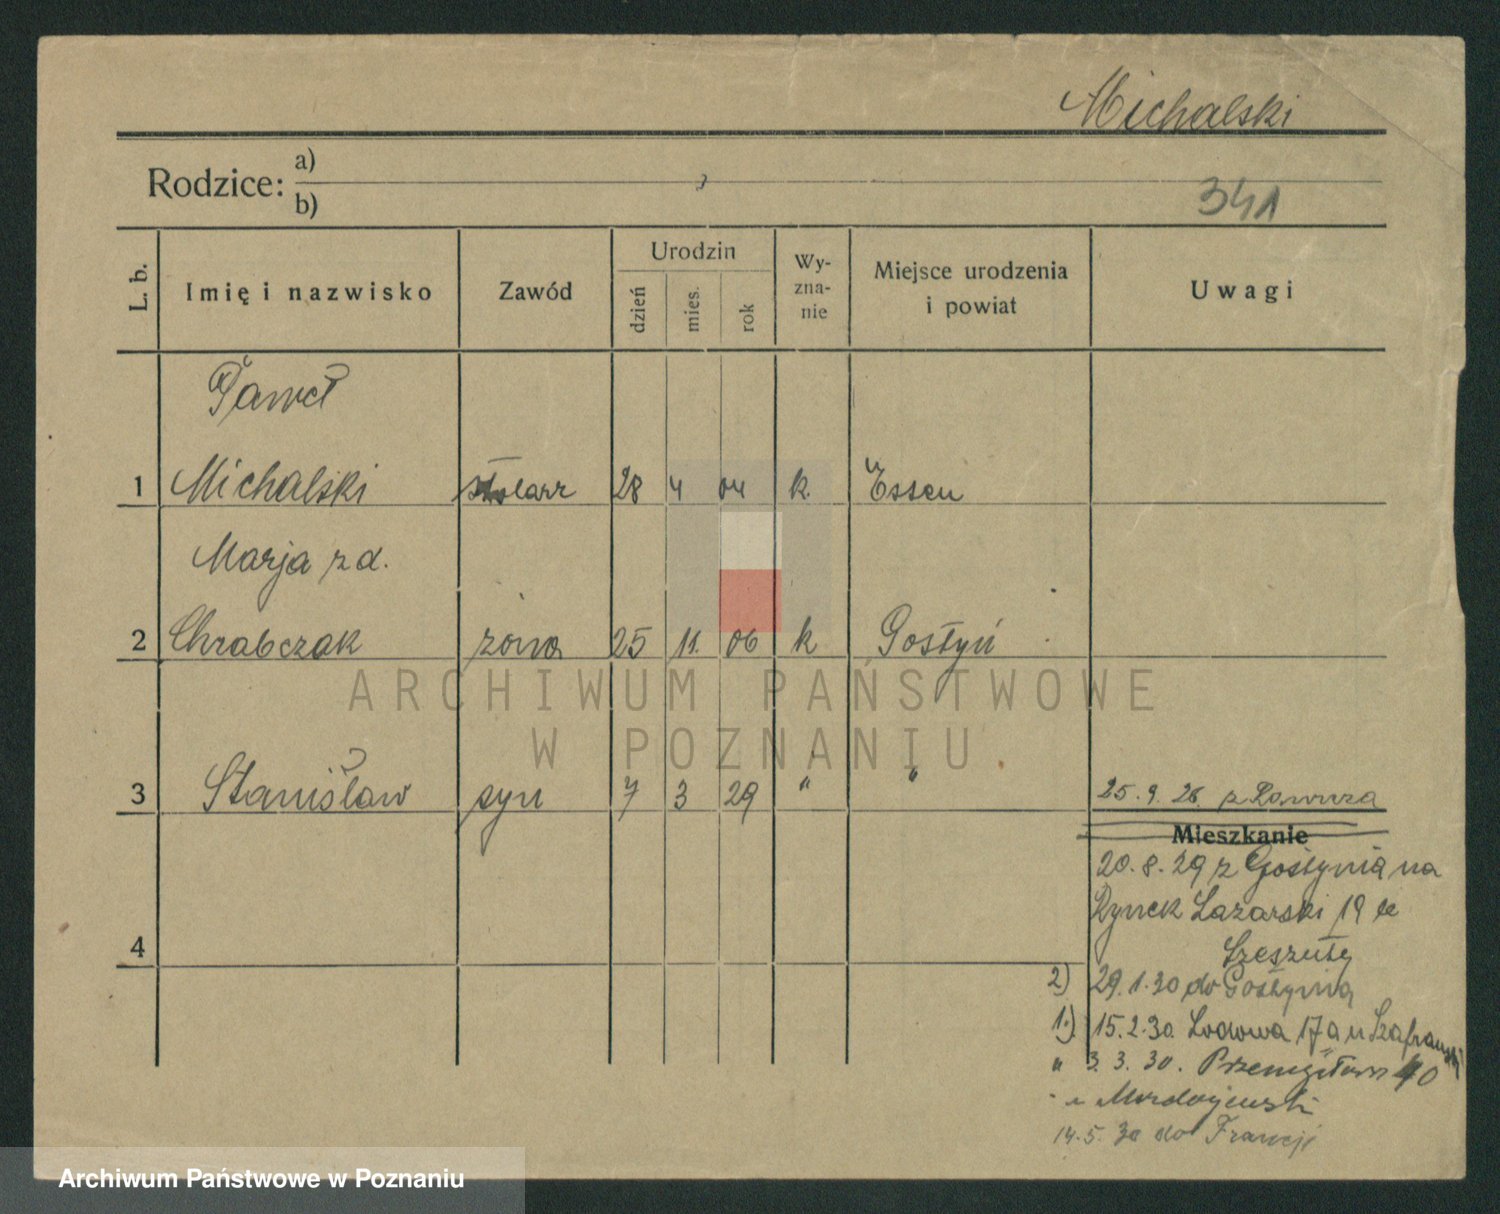 Michalski
Rodzice: a)
b)
341
L. b. Imię i nazwisko Zawód Urodzin dzień mies. rok Wy-zna-nie Miejsce urodzenia i powiat Uwagi
Paweł
1 Michalski stolarz 28 4 04 k. Essen
Marja z d.
2 Chrabczak żona 25 11. 06 k Gostyń
ARCHIWUM PAŃSTWOWE
W POZNANIU
3 Stanisław syn 7 3 29 " " 25. 9. 26. z Rawicza
Mieszkanie
20. 8. 29 z Gostynia na
Rynek Łazarski 19
4
2) 29. 1. 30 do Gostynia
1.) 15. 2. 30. Lodowa 17a u Szafrański
" 3. 3. 30. 40
14. 5. 30 do Francji
Archiwum Państwowe w Poznaniu